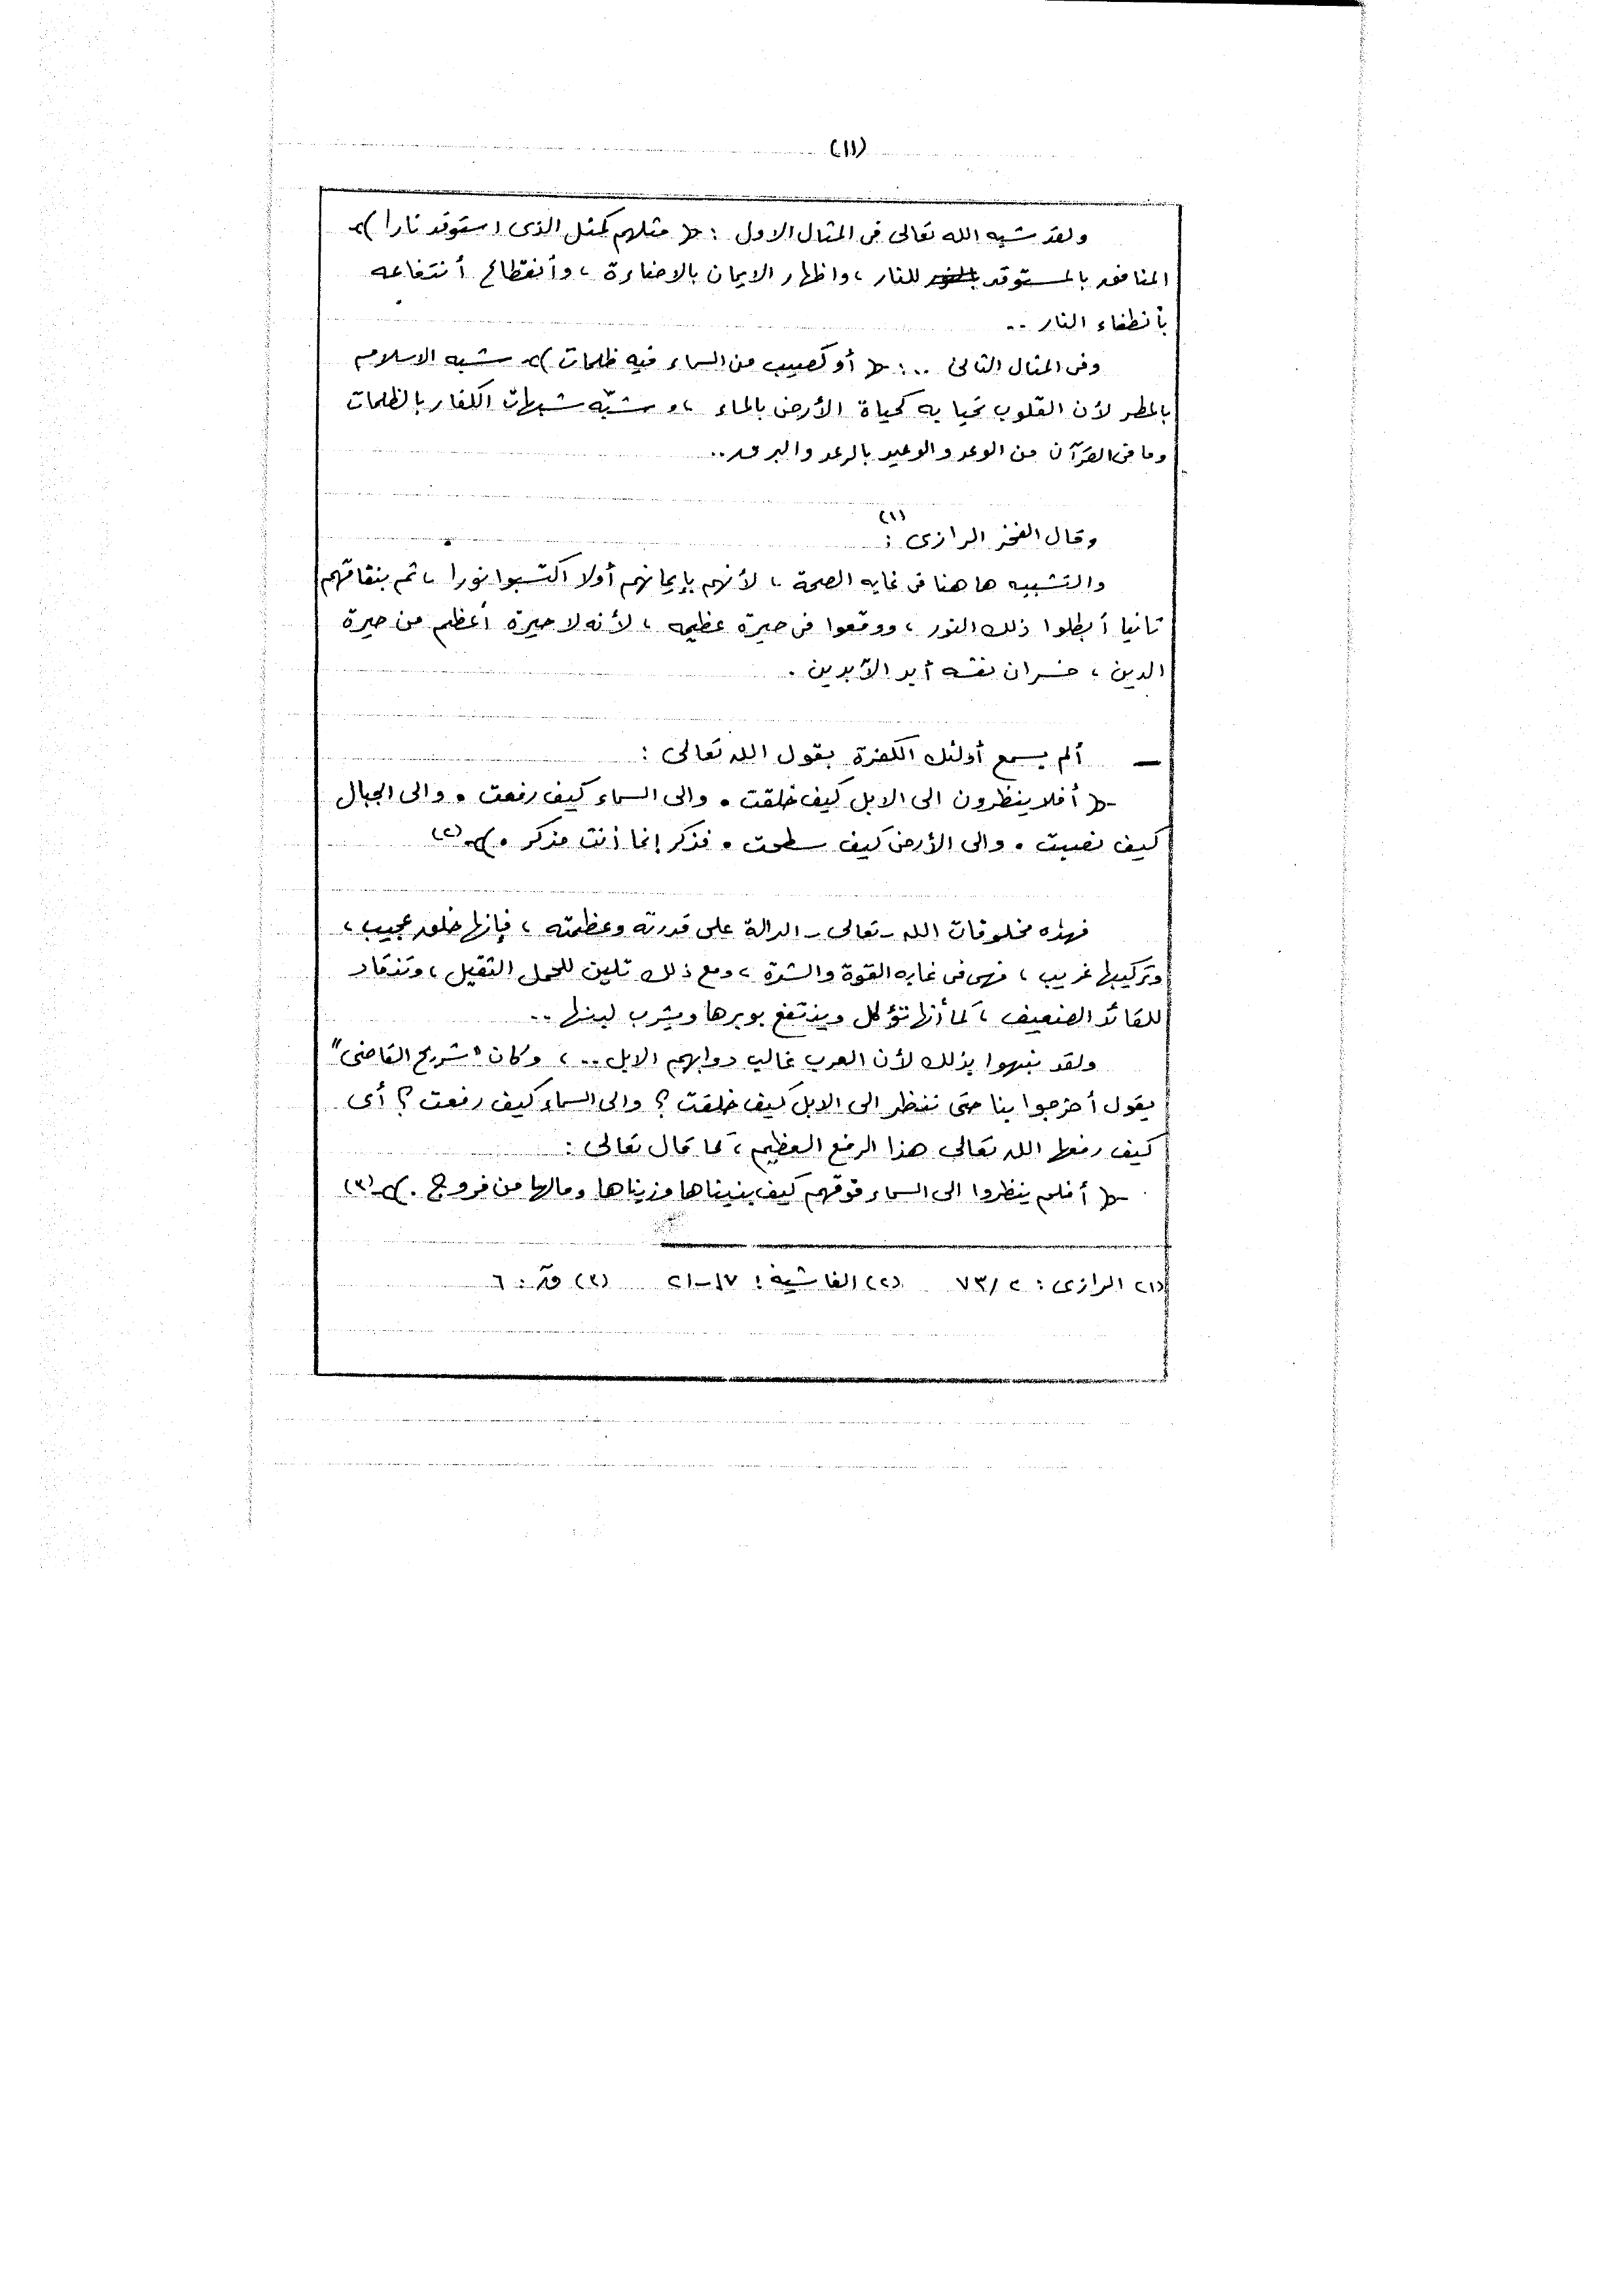 (١١)
ولقد شبه الله تعالى فى المثال الاول : ﴿ مثلهم كمثل الذى استوقد نارا ﴾
المنافق بالمستوقد للنار ، واظهار الايمان بالاضاءة ، وأنقطاع أنتفاعه
بأنطفاء النار ..
وفى المثال الثانى ..: ﴿ أو كصيب من السماء فيه ظلمات ﴾ شبه الاسلام
بالمطر لأن القلوب تحيا به كحياة الأرض بالماء ، و شبّه شبهات الكفار بالظلمات
وما فى القرآن من الوعد والوعيد بالرعد والبرق ..
وقال الفخر الرازى (١) :
والتشبيه ها هنا فى غايه الصحة ، لأنهم بإيمانهم أولا اكتسبوا نورا ، ثم بنفاقهم
ثانيا أبطلوا ذلك النور ، ووقعوا فى حيرة عظيمه ، لأنه لا حيرة أعظم من حيرة
الدين ، خسران نفسه أبد الآبدين .
— ألم يسمع أولئك الكفرة بقول الله تعالى :
﴿ أفلا ينظرون الى الابل كيف خلقت . والى السماء كيف رفعت . والى الجبال
كيف نصبت . والى الأرض كيف سطحت . فذكر إنما أنت مذكر . ﴾ (٢)
فهذه مخلوقات الله - تعالى - الدالة على قدرته وعظمته ، فإنها خلق عجيب ،
وتركيبها غريب ، فهى فى غايه القوة والشدة ، ومع ذلك تلين للحمل الثقيل ، وتنقاد
للقائد الضعيف ، كما أنها تؤكل وينتفع بوبرها ويشرب لبنها ..
ولقد نبهوا بذلك لأن العرب غالب دوابهم الابل .. ، وكان "شريح القاضى"
يقول أخرجوا بنا حتى ننظر الى الابل كيف خلقت ؟ والى السماء كيف رفعت ؟ أى
كيف رفعها الله تعالى هذا الرفع العظيم ، كما قال تعالى :
﴿ أفلم ينظروا الى السماء فوقهم كيف بنيناها وزيناها ومالها من فروج . ﴾ (٣)
(١) الرازى : ٢ / ٧٣ (٢) الغاشية : ١٧ - ٢١ (٣) ق : ٦